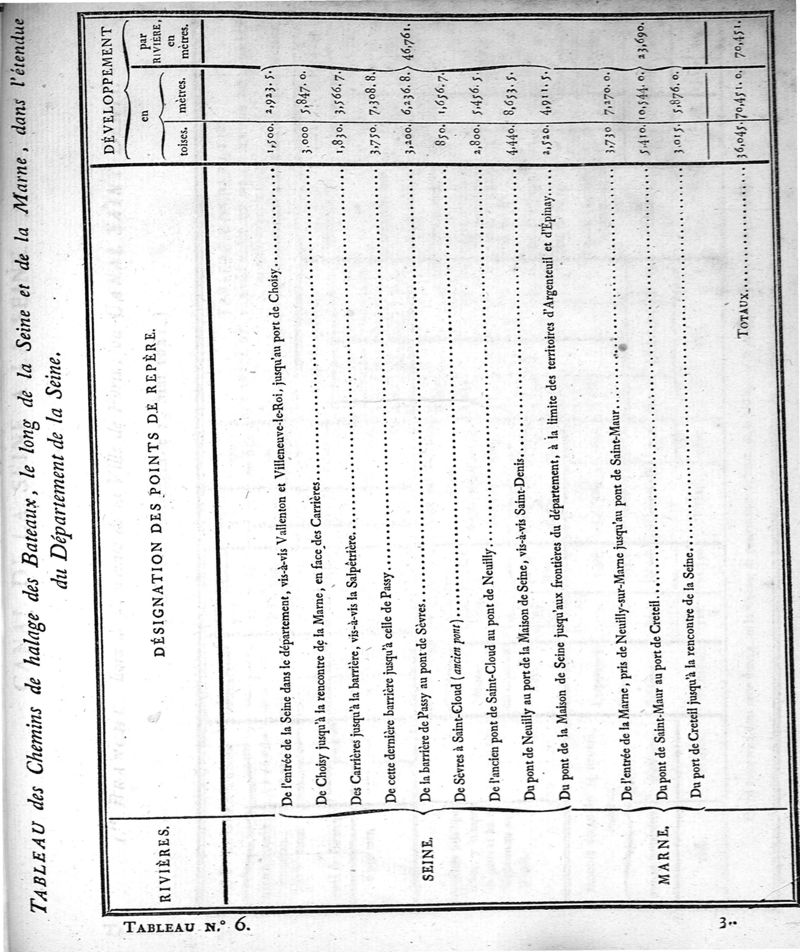 TABLEAU des Chemins de halage des Bateaux, le long de la Seine et de la Marne, dans l'étendue
du Département de la Seine.
RIVIÈRES.
DÉSIGNATION DES POINTS DE REPÈRE.
DÉVELOPPEMENT
en
toises. mètres.
par
RIVIÈRE,
en
mètres.
SEINE.
De l'entrée de la Seine dans le département, vis-à-vis Vallenton et Villeneuve-le-Roi, jusqu'au port de Choisy. 1,500. 2,923. 5.
De Choisy jusqu'à la rencontre de la Marne, en face des Carrières. 3,000 5,847. 0.
Des Carrières jusqu'à la barrière, vis-à-vis la Salpêtrière. 1,830. 3,566. 7.
De cette dernière barrière jusqu'à celle de Passy. 3,750. 7,308. 8.
De la barrière de Passy au pont de Sèvres. 3,200. 6,236. 8. 46,761.
De Sèvres à Saint-Cloud (ancien pont) 850. 1,656. 7.
De l'ancien pont de Saint-Cloud au pont de Neuilly. 2,800. 5,456. 5.
Du pont de Neuilly au port de la Maison de Seine, vis-à-vis Saint-Denis. 4,440. 8,653. 5.
Du pont de la Maison de Seine jusqu'aux frontières du département, à la limite des territoires d'Argenteuil et d'Épinay. 2,520. 4,911. 5.
MARNE.
De l'entrée de la Marne, pris de Neuilly-sur-Marne jusqu'au pont de Saint-Maur. 3,730 7,270. 0.
Du pont de Saint-Maur au port de Creteil. 5,410. 10,544. 0. 23,690.
Du port de Creteil jusqu'à la rencontre de la Seine. 3,015. 5,876. 0.
TOTAUX. 36,045. 70,451. 0. 70,451.
TABLEAU N.° 6.
3..